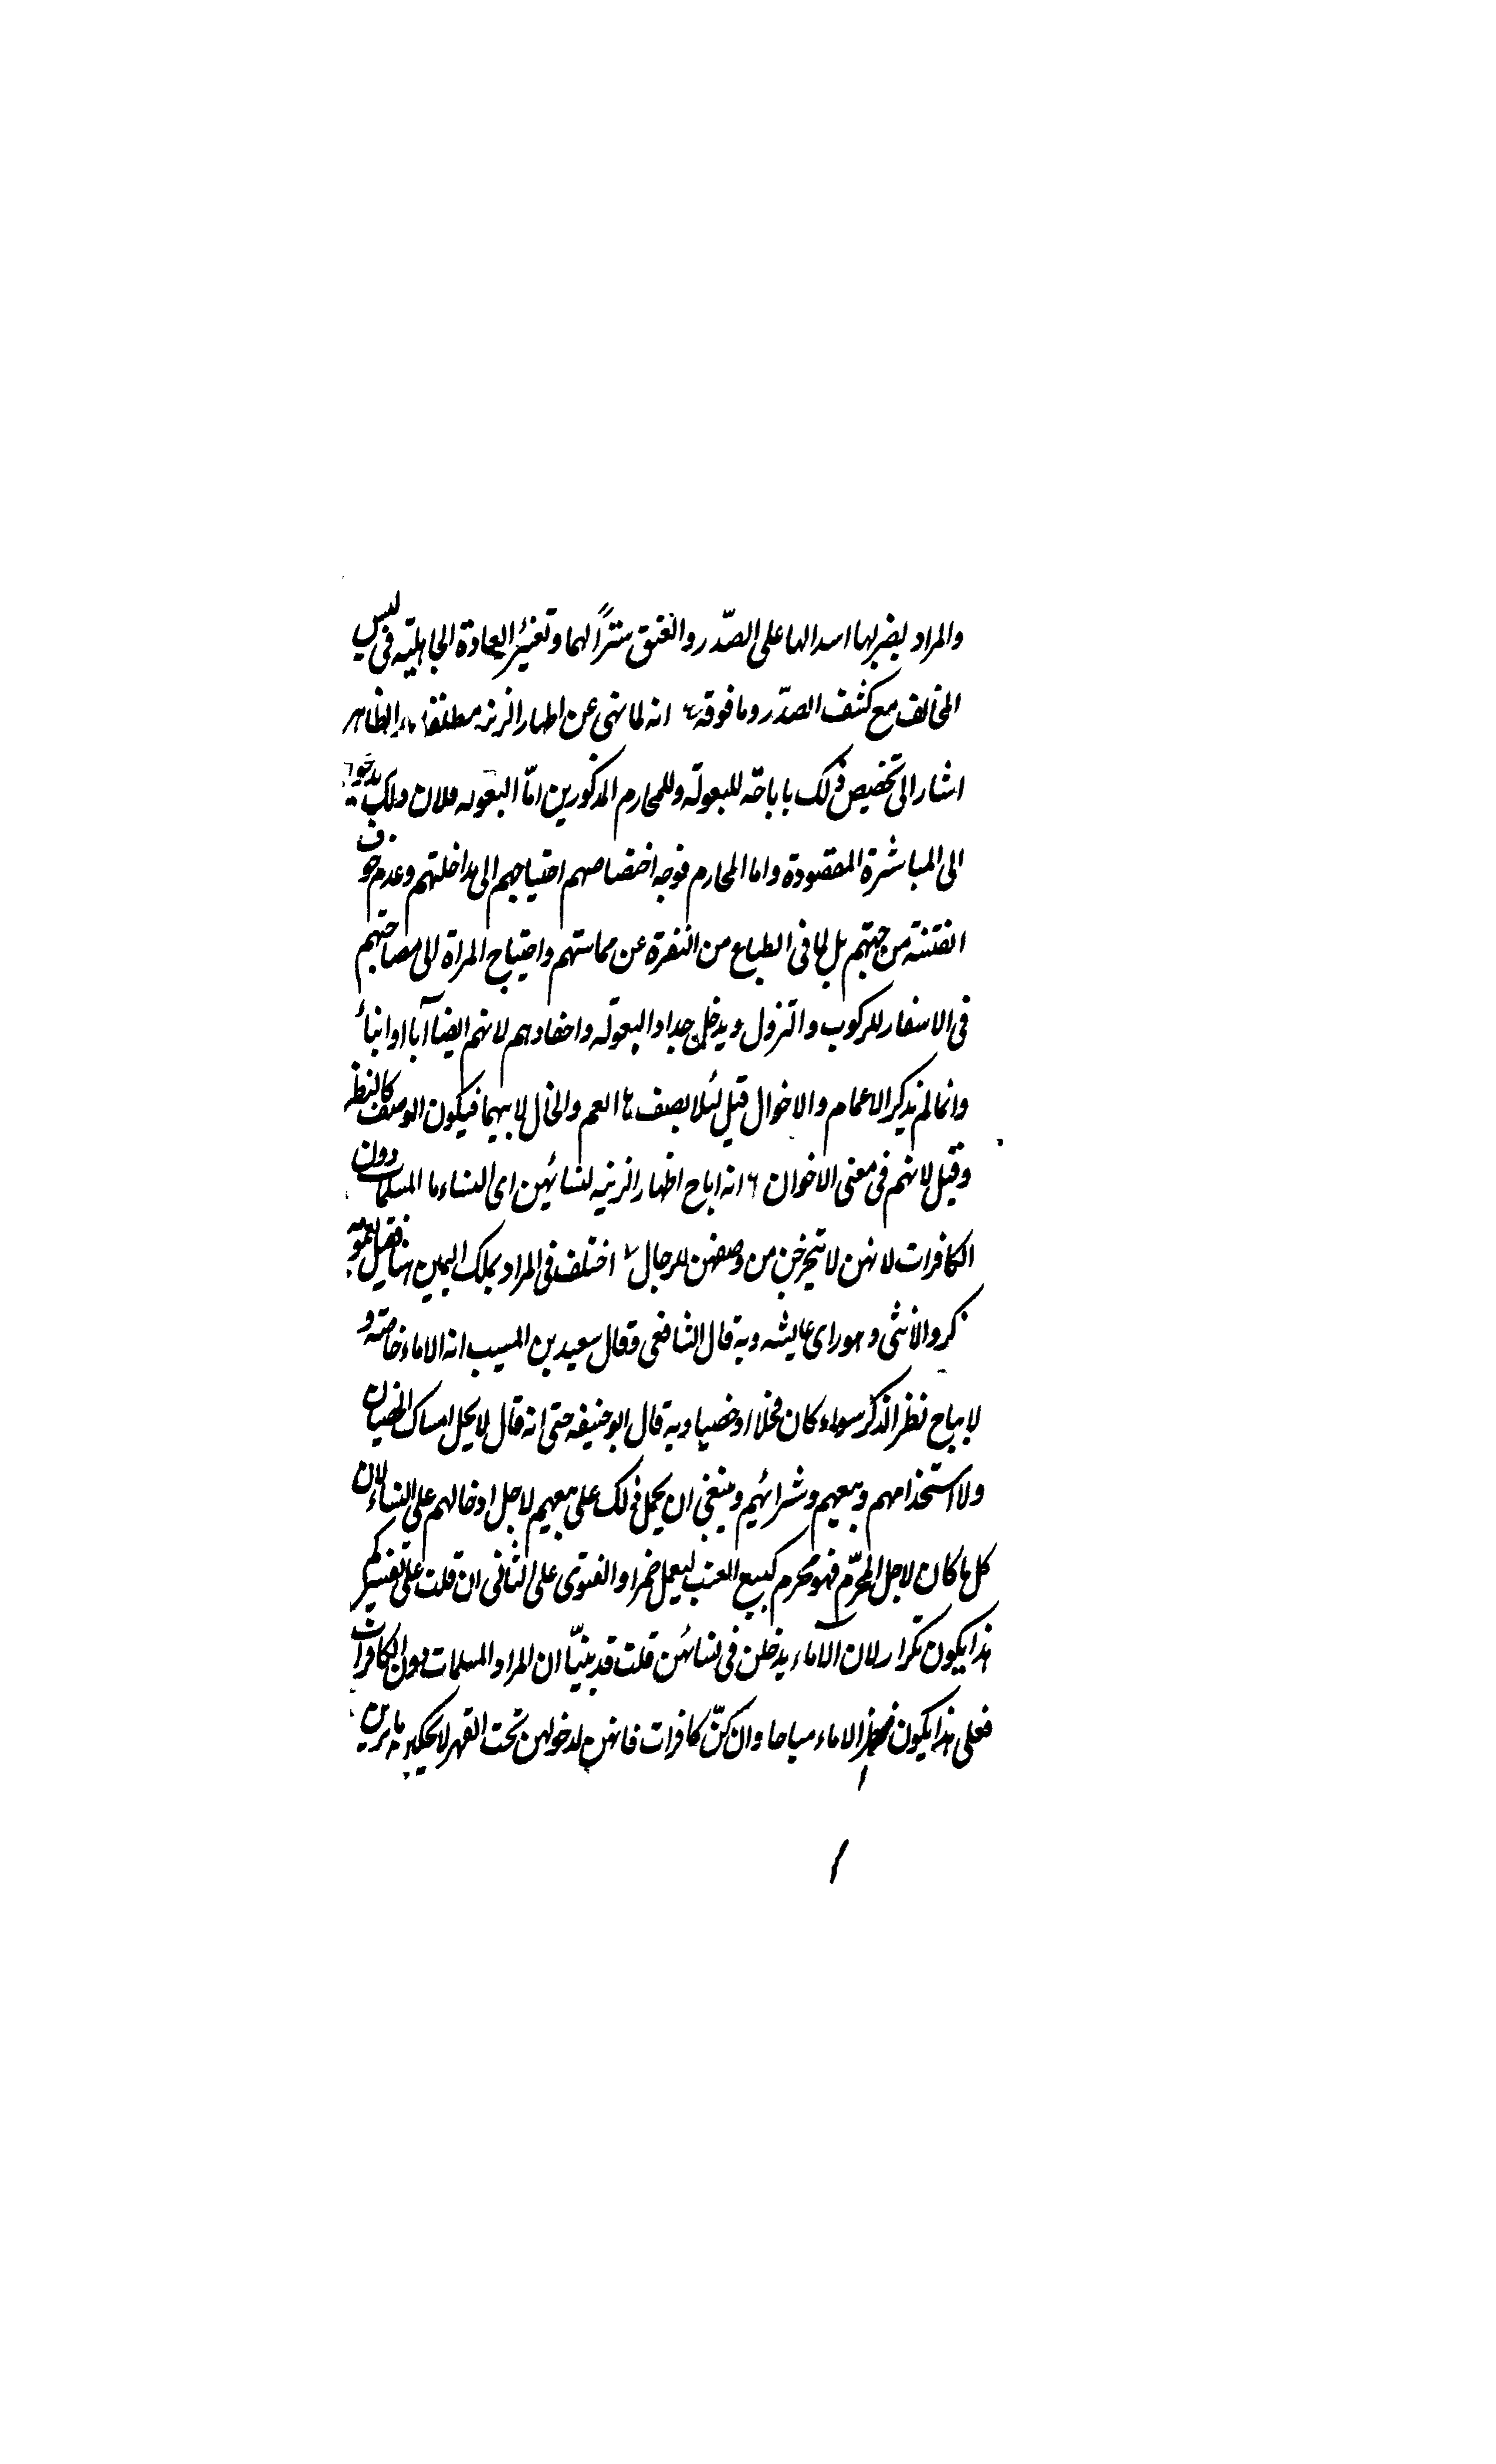 والمراد بضربها اسدالها على الصّدر والعنق ستراً لهما وتغييراً لعادة الجاهلية في لبس
المخالف مع كشف الصدّر وما فوقه انه لما نهى عن اظهار الزينة مطلقا الظاهر
اشار الى تخصيص ذلك باباحته للبعولة وللمحارم المذكورين امّا البعوله فلان ذلك يدعو
الى المباشرة المقصودة واما المحارم فوجه اختصاصهم احتياجهم الى مداخلتهم وعدم خوف
الفتنة من جهتهم بل لما في الطباع من النفرة عن مماستهم واحتياج المراة الى مصاحبتهم
في الاسفار للركوب والنزول ويدخل اجداد البعولة واحفادهم لانهم ايضا آبا او ابنا
وانما لم يذكر الاعمام والاخوال قيل لئلا يصفها العم والخال لابنيهما فيكون الوصف كالنظر
وقيل لانهم في معنى الاخوان ٦ انه اباح اظهار الزينه لنسائهن اى النساء المسلمات دون
الكافرات لانهن لا يتحرجن من وصفهن للرجال ٧ اختلف في المراد بملك اليمين هنا فقيل بعمومه
كر والانثى وهو راى عايشه وبه قال الشافعي وقال سعيد بن المسيب انه الاماء خاصة و
لا يباح نظر الذكر سواء كان فحلا او خصيا وبه قال ابو حنيفه حتى انه قال لا يحل امساك الخصيان
ولا استخدامهم وبيعهم وشرائهم وينبغي ان يحمل ذلك على بيعهم لاجل ادخالهم على النساء لان
كل ما كان لاجل المحرّم فهو محرم كبيع العنب ليعمل خمرا والفتوى على الثانى ان قلت على تفسيركم
هذا يكون تكرار لان الاماء يدخلن في نسائهن قلت قد بينّا ان المراد المسلمات دون الكافرات
فعلى هذا يكون نظر الاماء مباحا وان كنّ كافرات فانهن لدخولهن تحت القهر لا يحكين ما يرين